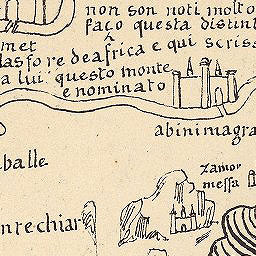 non son noti molto
faço questa distint
met
lasfore de africa e qui scriss
a lui questo monte
e nominato
abinimagra
balle
zamor
messa
nte chiar